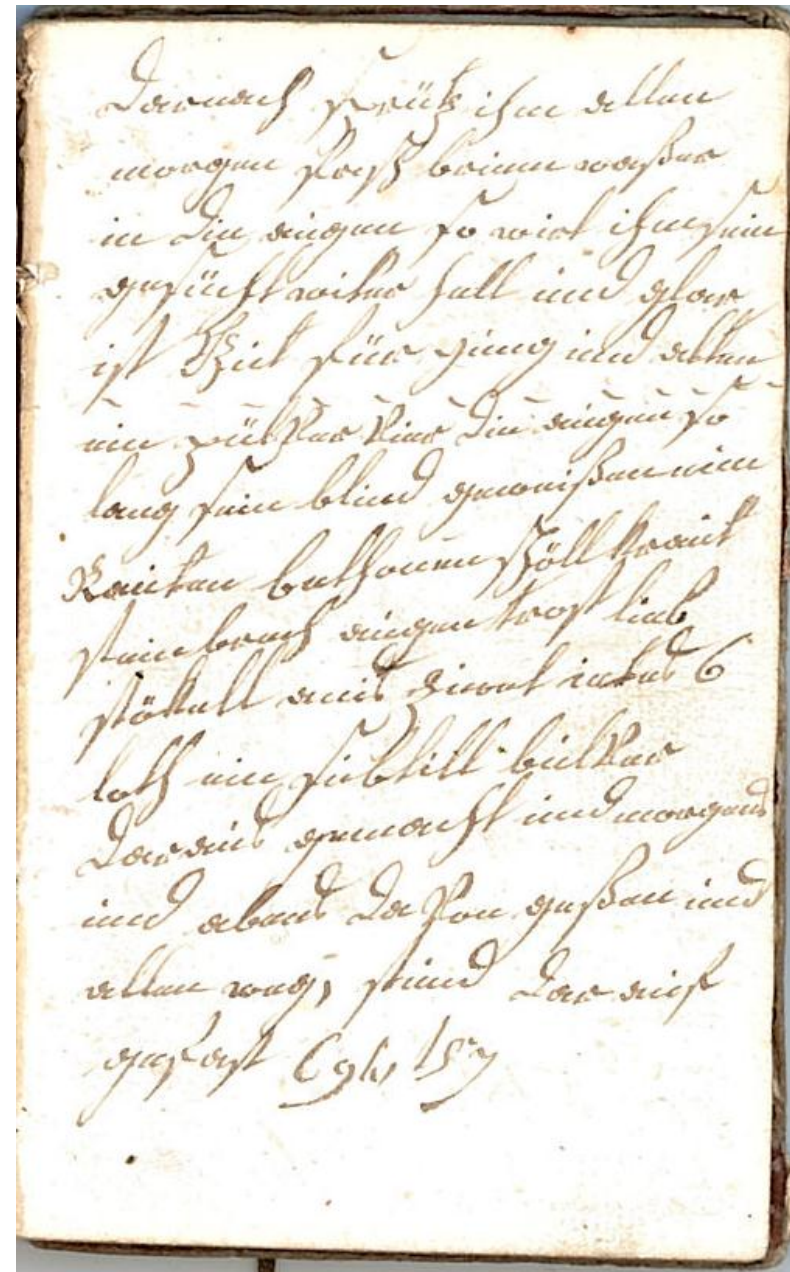 Darnach sprütz ihm allen
morgen frisch brunn waßer
in die augen so wirt ihm sein
gesücht witer hell und glar
ist guet für jung und alten
ein pülffer für die augen so
lang sein blind geweißen nim
Rauten bethonien schöllkraut
steinbrech augentrost lieb
stökell anis zimet iedes 6
loth ein subtill bulffer
daraus gemacht und morgens
und abens dafon geßen und
allen weg, stund darauf
gefast